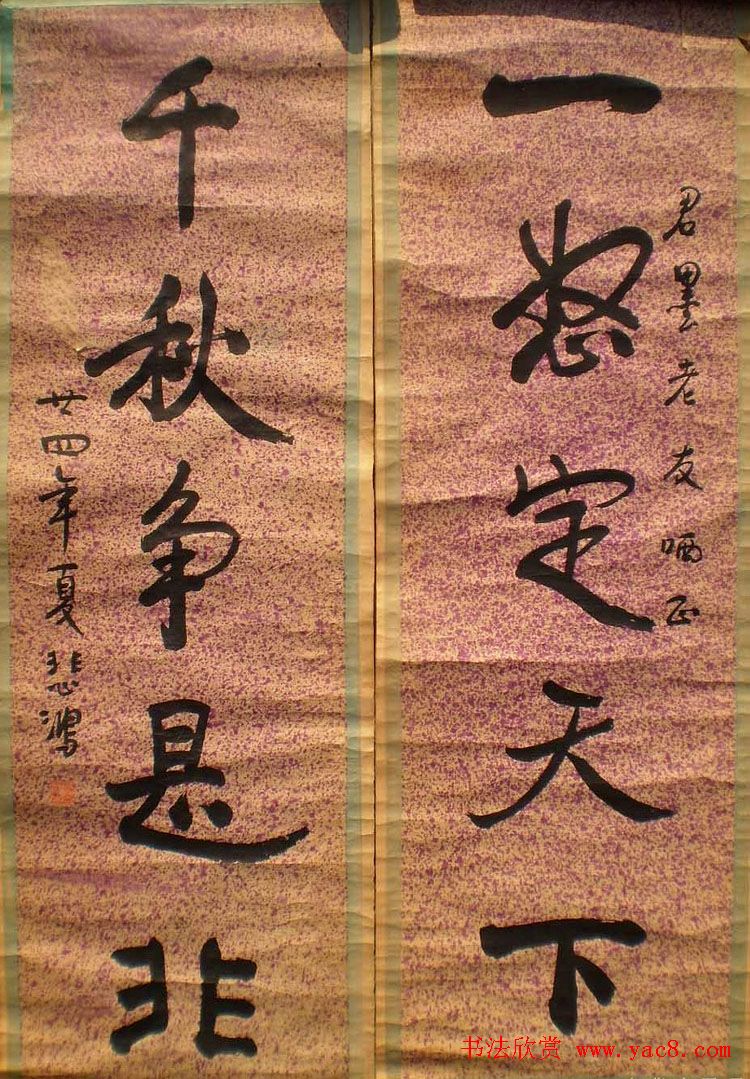 君墨老友哂正
一怒定天下
千秋争是非
廿四年夏悲鴻
书法欣赏 www.yac8.com